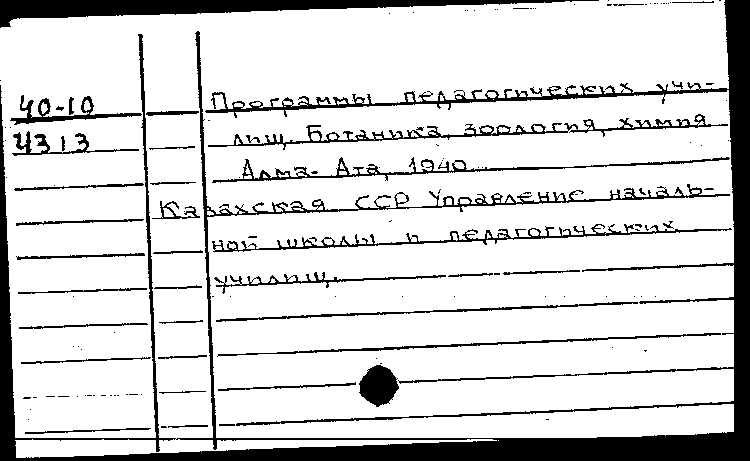 40-10
4313
Программы педагогических учи-
лищ. Ботаника, зоология, химия
Алма-Ата, 1940
Казахская ССР Управление началь-
ной школы и педагогических
училищ.